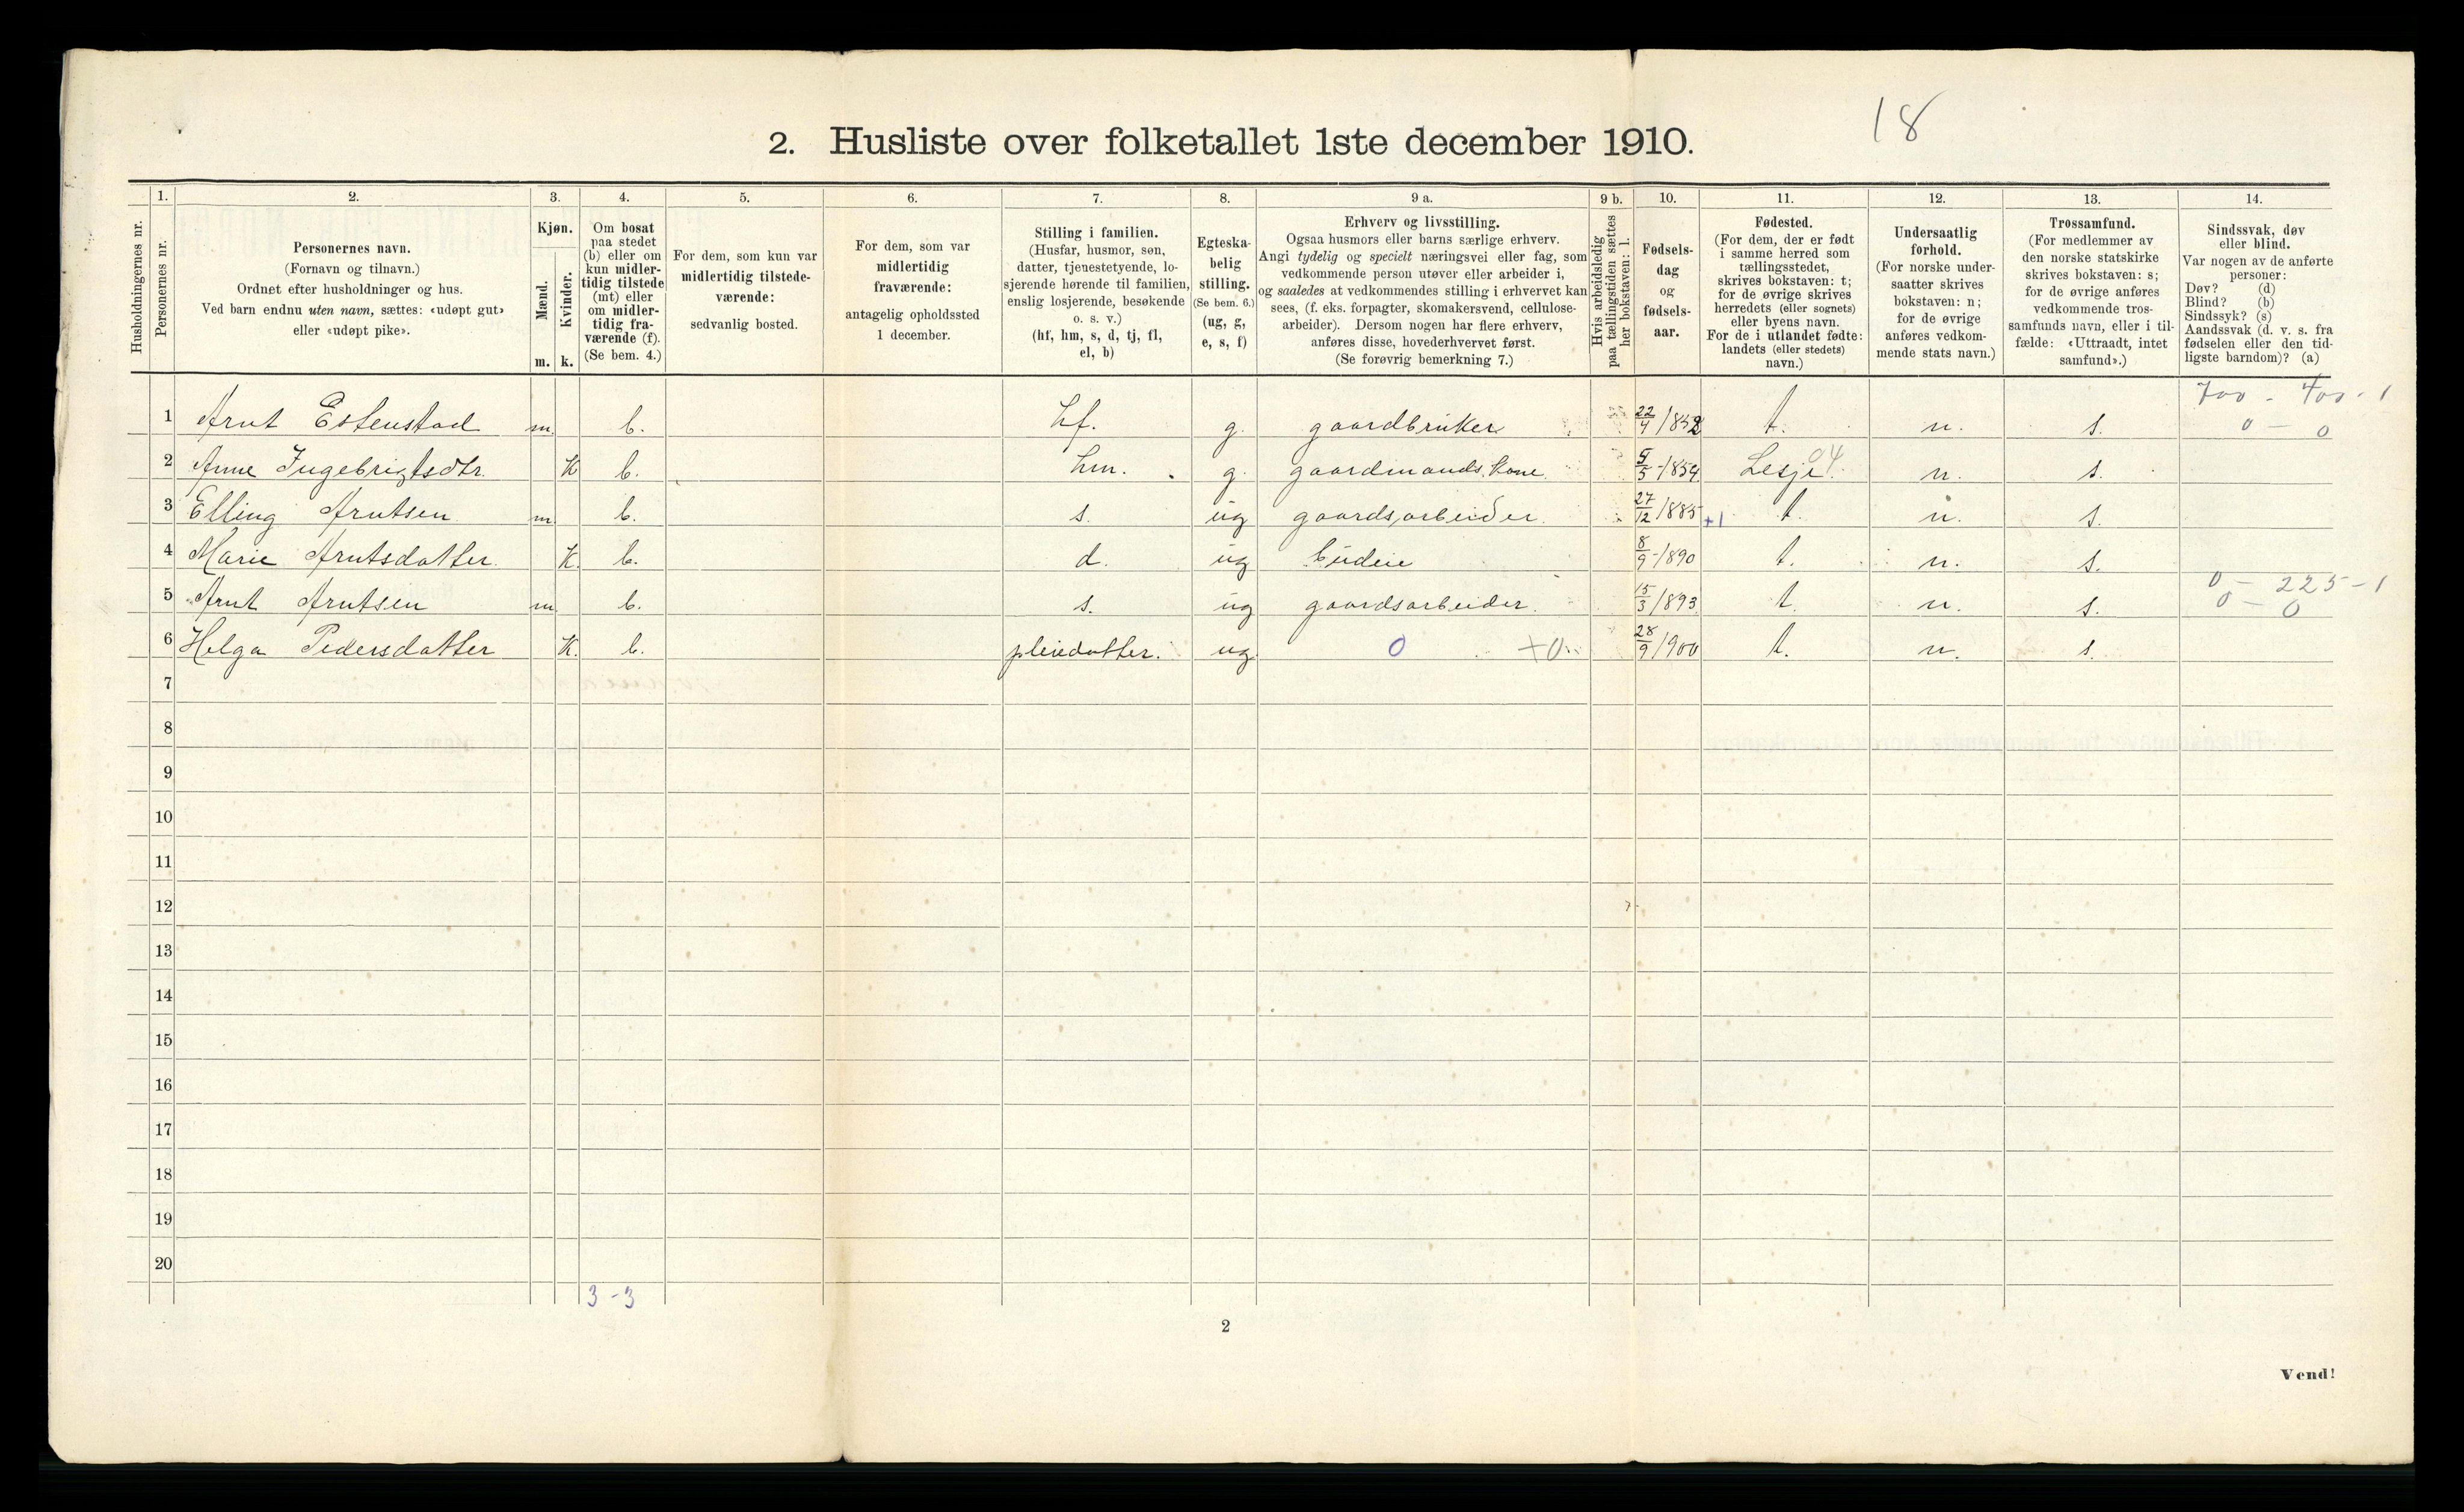 18
2. Husliste over folketallet 1ste december 1910.
1. 2. 3. 4. 5. 6. 7. 8. 9 a. 9 b. 10. 11. 12. 13. 14.
Husholdningernes nr.
Personernes nr.
Personernes navn.
(Fornavn og tilnavn.)
Ordnet efter husholdninger og hus.
Ved barn endnu uten navn, sættes: «udøpt gut»
eller «udøpt pike».
Kjøn.
Mænd.
Kvinder.
m. k.
Om bosat
paa stedet
(b) eller om
kun midler-
tidig tilstede
(mt) eller
om midler-
tidig fra-
værende (f).
(Se bem. 4.)
For dem, som kun var
midlertidig tilstede-
værende:
sedvanlig bosted.
For dem, som var
midlertidig
fraværende:
antagelig opholdssted
1 december.
Stilling i familien.
(Husfar, husmor, søn,
datter, tjenestetyende, lo-
sjerende hørende til familien,
enslig losjerende, besøkende
o. s. v.)
(hf, hm, s, d, tj, fl,
el, b)
Egteska-
belig
stilling.
(Se bem. 6.)
(ug, g,
e, s, f)
Erhverv og livsstilling.
Ogsaa husmors eller barns særlige erhverv.
Angi tydelig og specielt næringsvei eller fag, som
vedkommende person utøver eller arbeider i,
og saaledes at vedkommendes stilling i erhvervet kan
sees, (f. eks. forpagter, skomakersvend, cellulose-
arbeider). Dersom nogen har flere erhverv,
anføres disse, hovederhvervet først.
(Se forøvrig bemerkning 7.)
Hvis arbeidsledig
paa tællingstiden sættes
her bokstaven: l.
Fødsels-
dag
og
fødsels-
aar.
Fødested.
(For dem, der er født
i samme herred som
tællingsstedet,
skrives bokstaven: t;
for de øvrige skrives
herredets (eller sognets)
eller byens navn.
For de i utlandet fødte:
landets (eller stedets)
navn.)
Undersaatlig
forhold.
(For norske under-
saatter skrives
bokstaven: n;
for de øvrige
anføres vedkom-
mende stats navn.)
Trossamfund.
(For medlemmer av
den norske statskirke
skrives bokstaven: s;
for de øvrige anføres
vedkommende tros-
samfunds navn, eller i til-
fælde: «Uttraadt, intet
samfund».)
Sindssvak, døv
eller blind.
Var nogen av de anførte
personer:
Døv? (d)
Blind? (b)
Sindssyk? (s)
Aandssvak (d. v. s. fra
fødselen eller den tid-
ligste barndom)? (a)
700 - 400 - 1
1 Arnt Estenstad m. b. hf. g. gaardbruker 22/4 1852 t. n. s. 0 - 0
2 Anne Ingebrigtsdtr. K b. hm. g. gaardmands kone 5/5-1854 Lesje 04. n. s.
3 Elling Arntsen m. b. s. ug gaardsarbeider. 27/12 1885 +1 t. n. s.
4 Marie Arntsdatter. K. b. d. ug budeie 8/9-1890 t. n. s.
0 - 225 - 1
5 Arnt Arntsen m b. s. ug gaardsarbeider. 15/3 1893 t. n. s. 0 - 0
6 Helga Pedersdatter K. b. pleiedatter. ug. 0 +0 28/9 1900 t. n. s.
7
8
9
10
11
12
13
14
15
16
17
18
19
20
3 - 3
2
Vend!